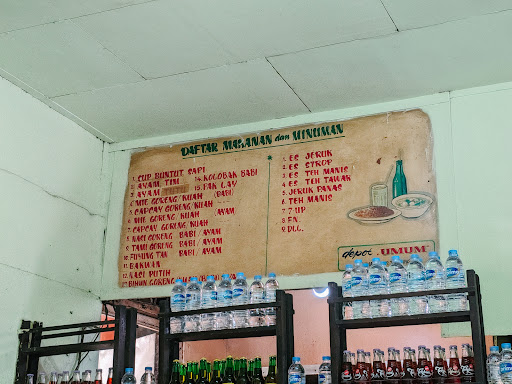 DAFTAR MAKANAN dan MINUMAN
1. SUP. BUNTUT SAPI
2. AYAM. TIM
3. AYAM
4. MIE GORENG/KUAH (BABI)
5. CAPCAY GORENG/KUAH
6. MIE GORENG/KUAH (AYAM
7. CAPCAY GORENG/KUAH
8. NASI GORENG BABI/AYAM
9. TAMI GORENG BABI/AYAM
10. FUYUNG TAN BABI/AYAM
11. BAKWAN
12. NASI PUTIH
13. BIHUN GORENG/KUAH (BABI/AYAM
14. KOLOBAK BABI
15. PAK LAY
1. ES JERUK
2. ES STROP
3. ES TEH MANIS
4. ES TEH TAWAR
5. JERUK PANAS
6. TEH MANIS
7. 7-UP
8. FN.
9. DLL.
depot UMUM